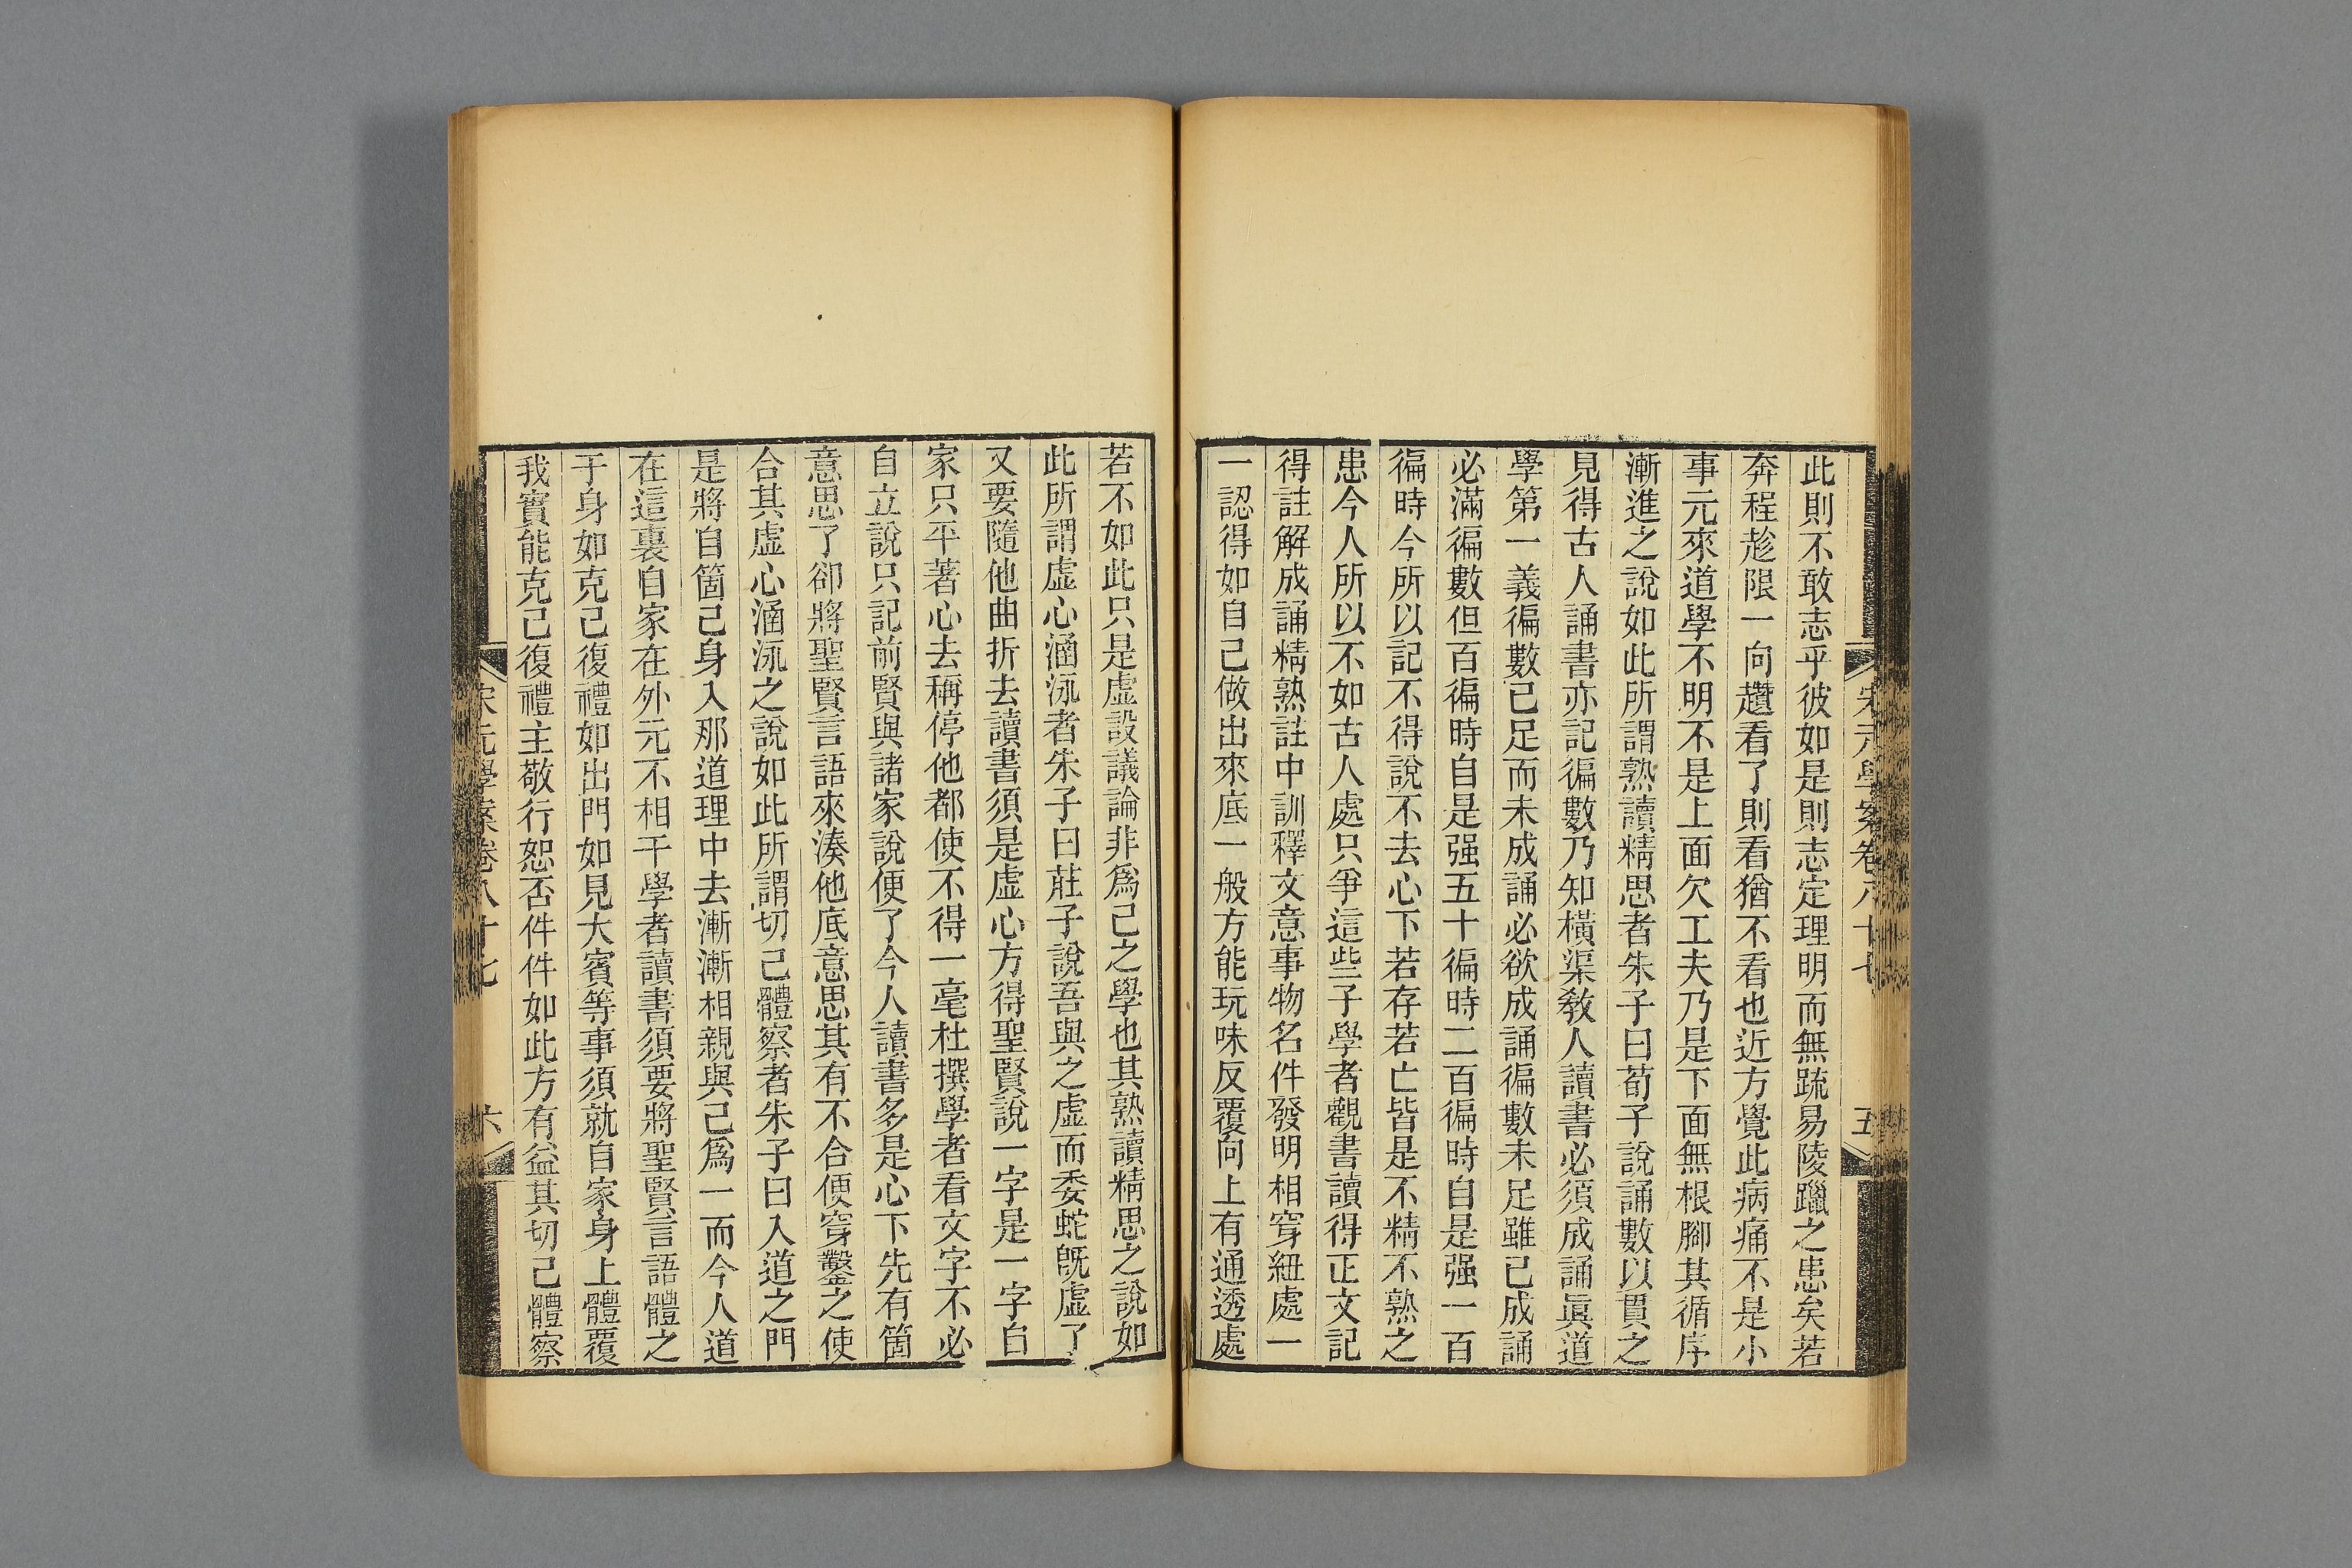 宋元學案卷八十七
五
此則不敢志乎彼如是則志定理明而無疏易陵躐之患矣若
奔程趁限一向趲看了則看猶不看也近方覺此病痛不是小
事元來道學不明不是上面欠工夫乃是下面無根腳其循序
漸進之說如此所謂熟讀精思者朱子曰荀子說誦數以貫之
見得古人誦書亦記徧數乃知橫渠敎人讀書必須成誦眞道
學第一義徧數已足而未成誦必欲成誦徧數未足雖已成誦
必滿徧數但百徧時自是强五十徧時二百徧時自是强一百
徧時今所以記不得說不去心下若存若亡皆是不精不熟之
患今人所以不如古人處只爭這些子學者觀書讀得正文記
得註解成誦精熟註中訓釋文意事物名件發明相穿紐處一
一認得如自己做出來底一般方能玩味反覆向上有通透處
若不如此只是虛設議論非爲己之學也其熟讀精思之說如
此所謂虛心涵泳者朱子曰莊子說吾與之虛而委蛇旣虛了
又要隨他曲折去讀書須是虛心方得聖賢說一字是一字自
家只平著心去稱停他都使不得一毫杜撰學者看文字不必
自立說只記前賢與諸家說便了今人讀書多是心下先有箇
意思了卻將聖賢言語來湊他底意思其有不合便穿鑿之使
合其虛心涵泳之說如此所謂切己體察者朱子曰入道之門
是將自箇己身入那道理中去漸漸相親與己爲一而今人道
在這裏自家在外元不相干學者讀書須要將聖賢言語體之
于身如克己復禮如出門如見大賓等事須就自家身上體覆
我實能克己復禮主敬行恕否件件如此方有益其切己體察
宋元學案卷八十七
六